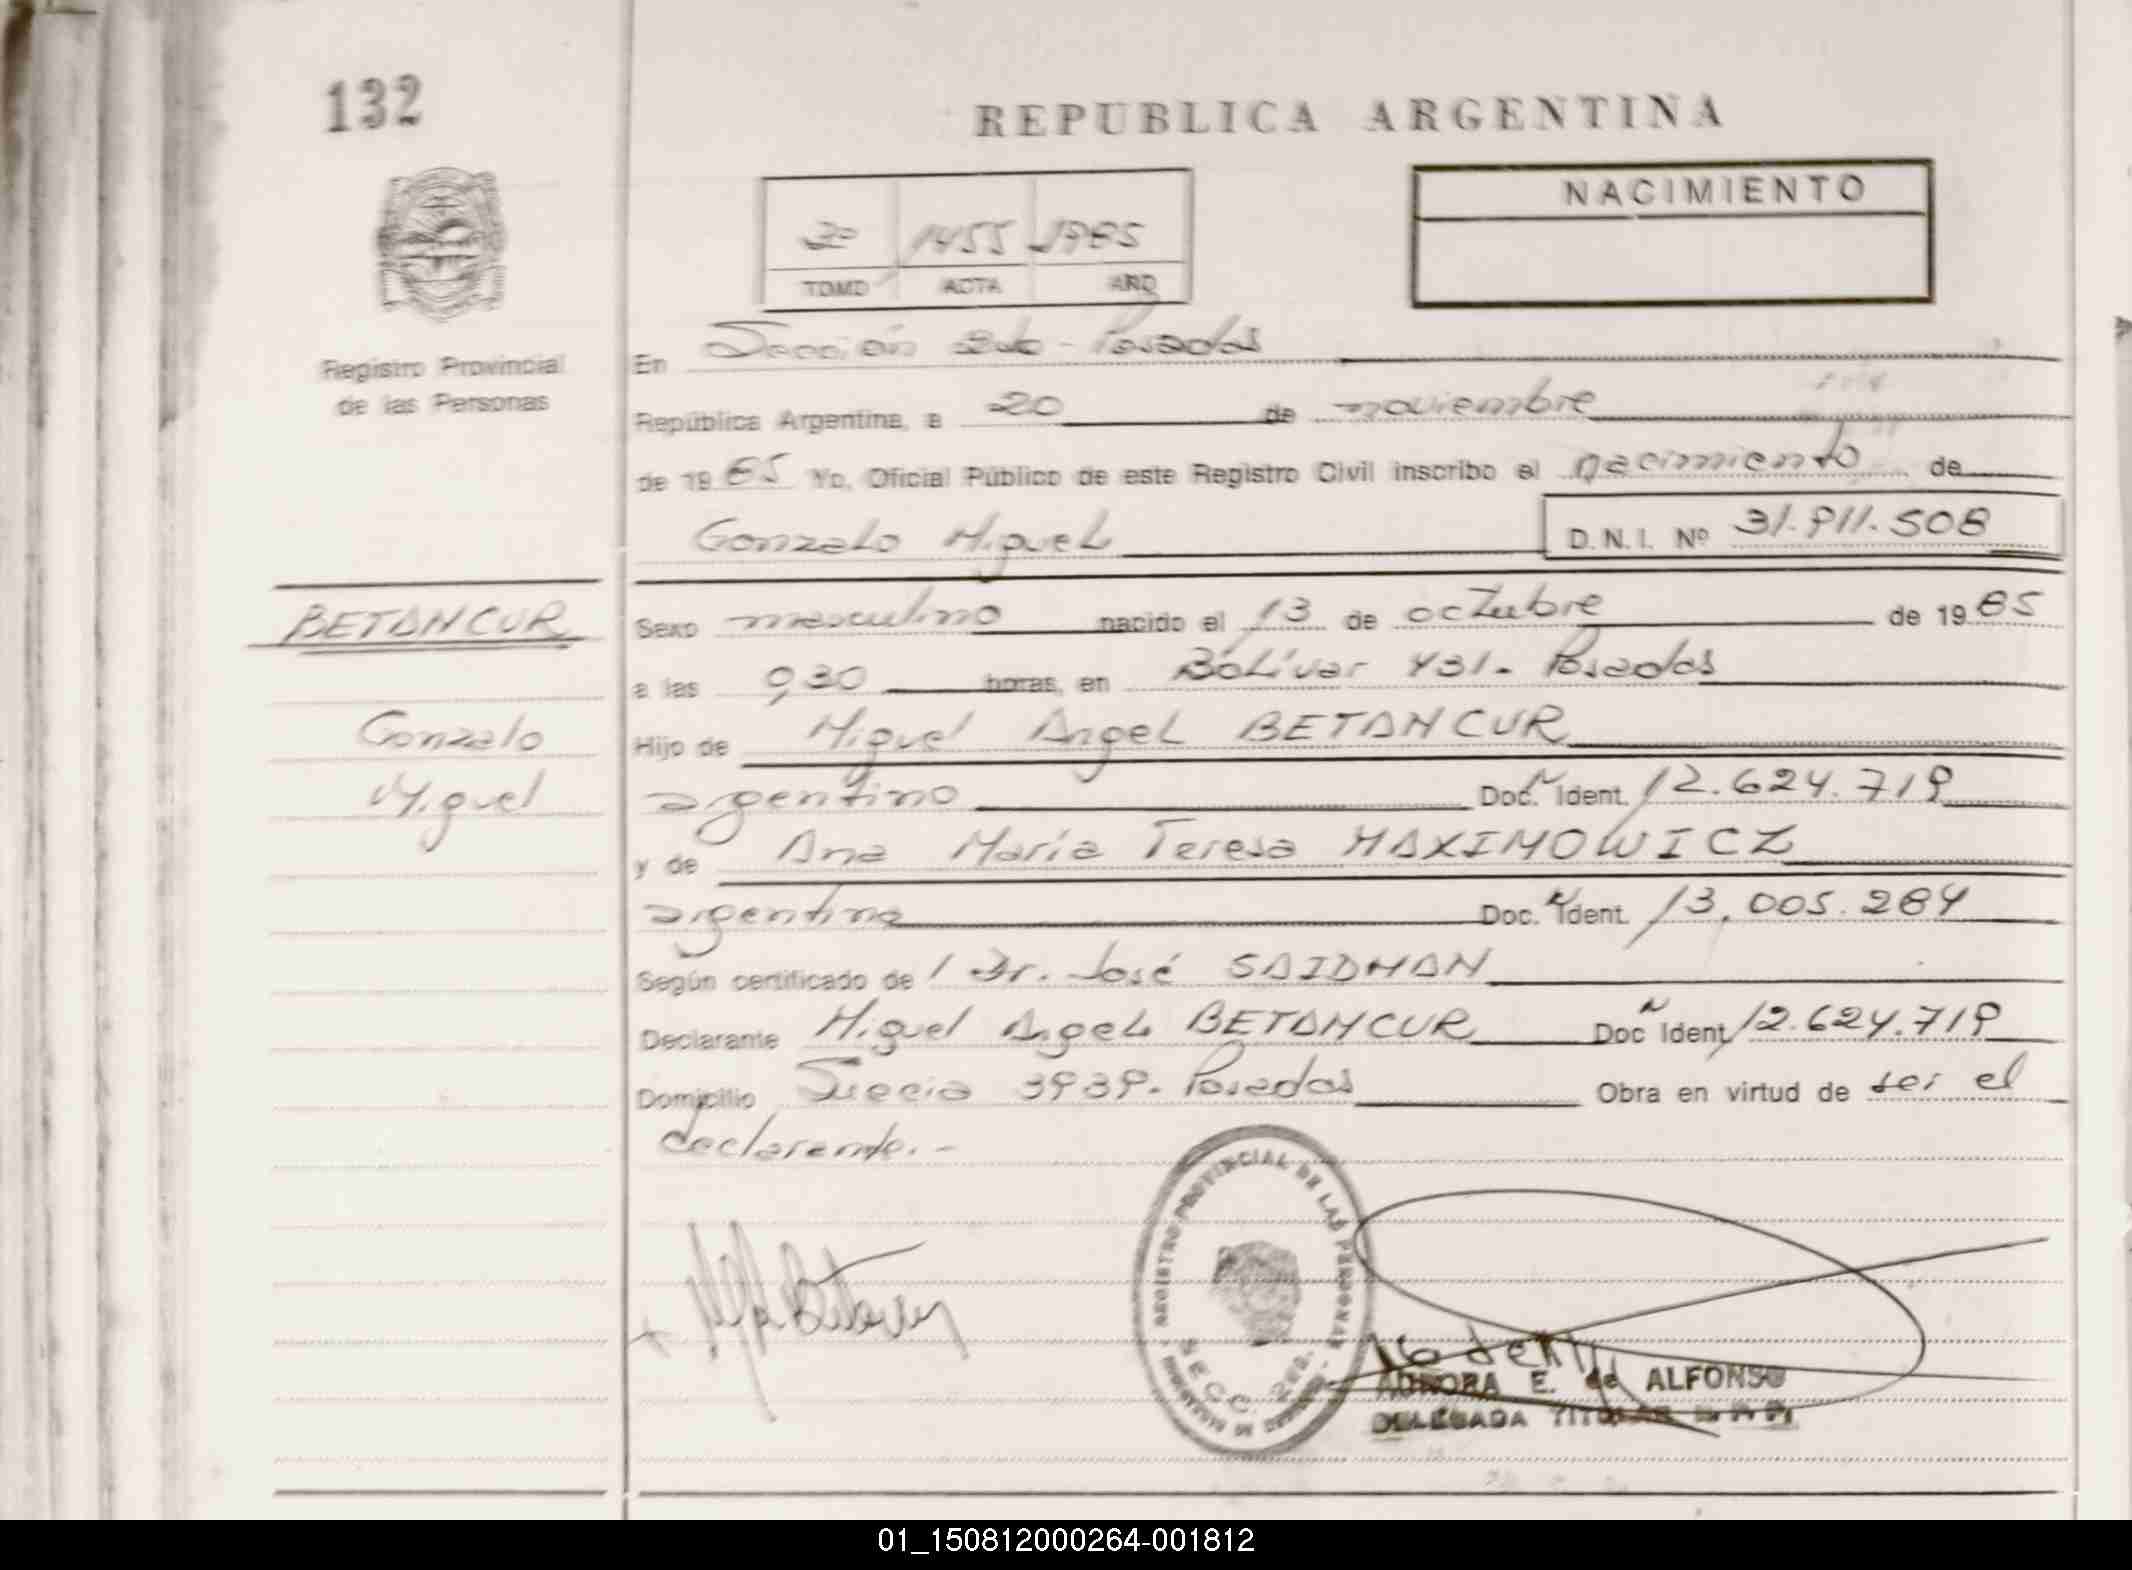 132
REPUBLICA ARGENTINA
NACIMIENTO
2º 1455 1985
TOMO ACTA AÑO
Registro Provincial
de las Personas
En Sección 2da - Posadas
República Argentina, a 20 de noviembre
de 1985 Yo, Oficial Público de este Registro Civil inscribo el nacimiento de
Gonzalo Miguel D.N.I. Nº 31.911.508
BETANCUR
Gonzalo
Miguel
Sexo masculino nacido el 13 de octubre de 1985
a las 9,30 horas, en Bolívar 431 - Posadas
Hijo de Miguel Angel BETANCUR
argentino Doc. N Ident. 12.624.719
y de Ana María Teresa MAXIMOWICZ
argentina Doc. N Ident. 13.005.284
Según certificado de / Dr. José SAIDMAN
Declarante Miguel Angel BETANCUR Doc N Ident 12.624.719
Domicilio Suecia 3939 - Posadas Obra en virtud de ser el
declarante.-
REGISTRO PROVINCIAL DE LAS PERSONAS
SECC. 2da.
E. de ALFONSO
DELEGADA TITULAR
01_150812000264-001812